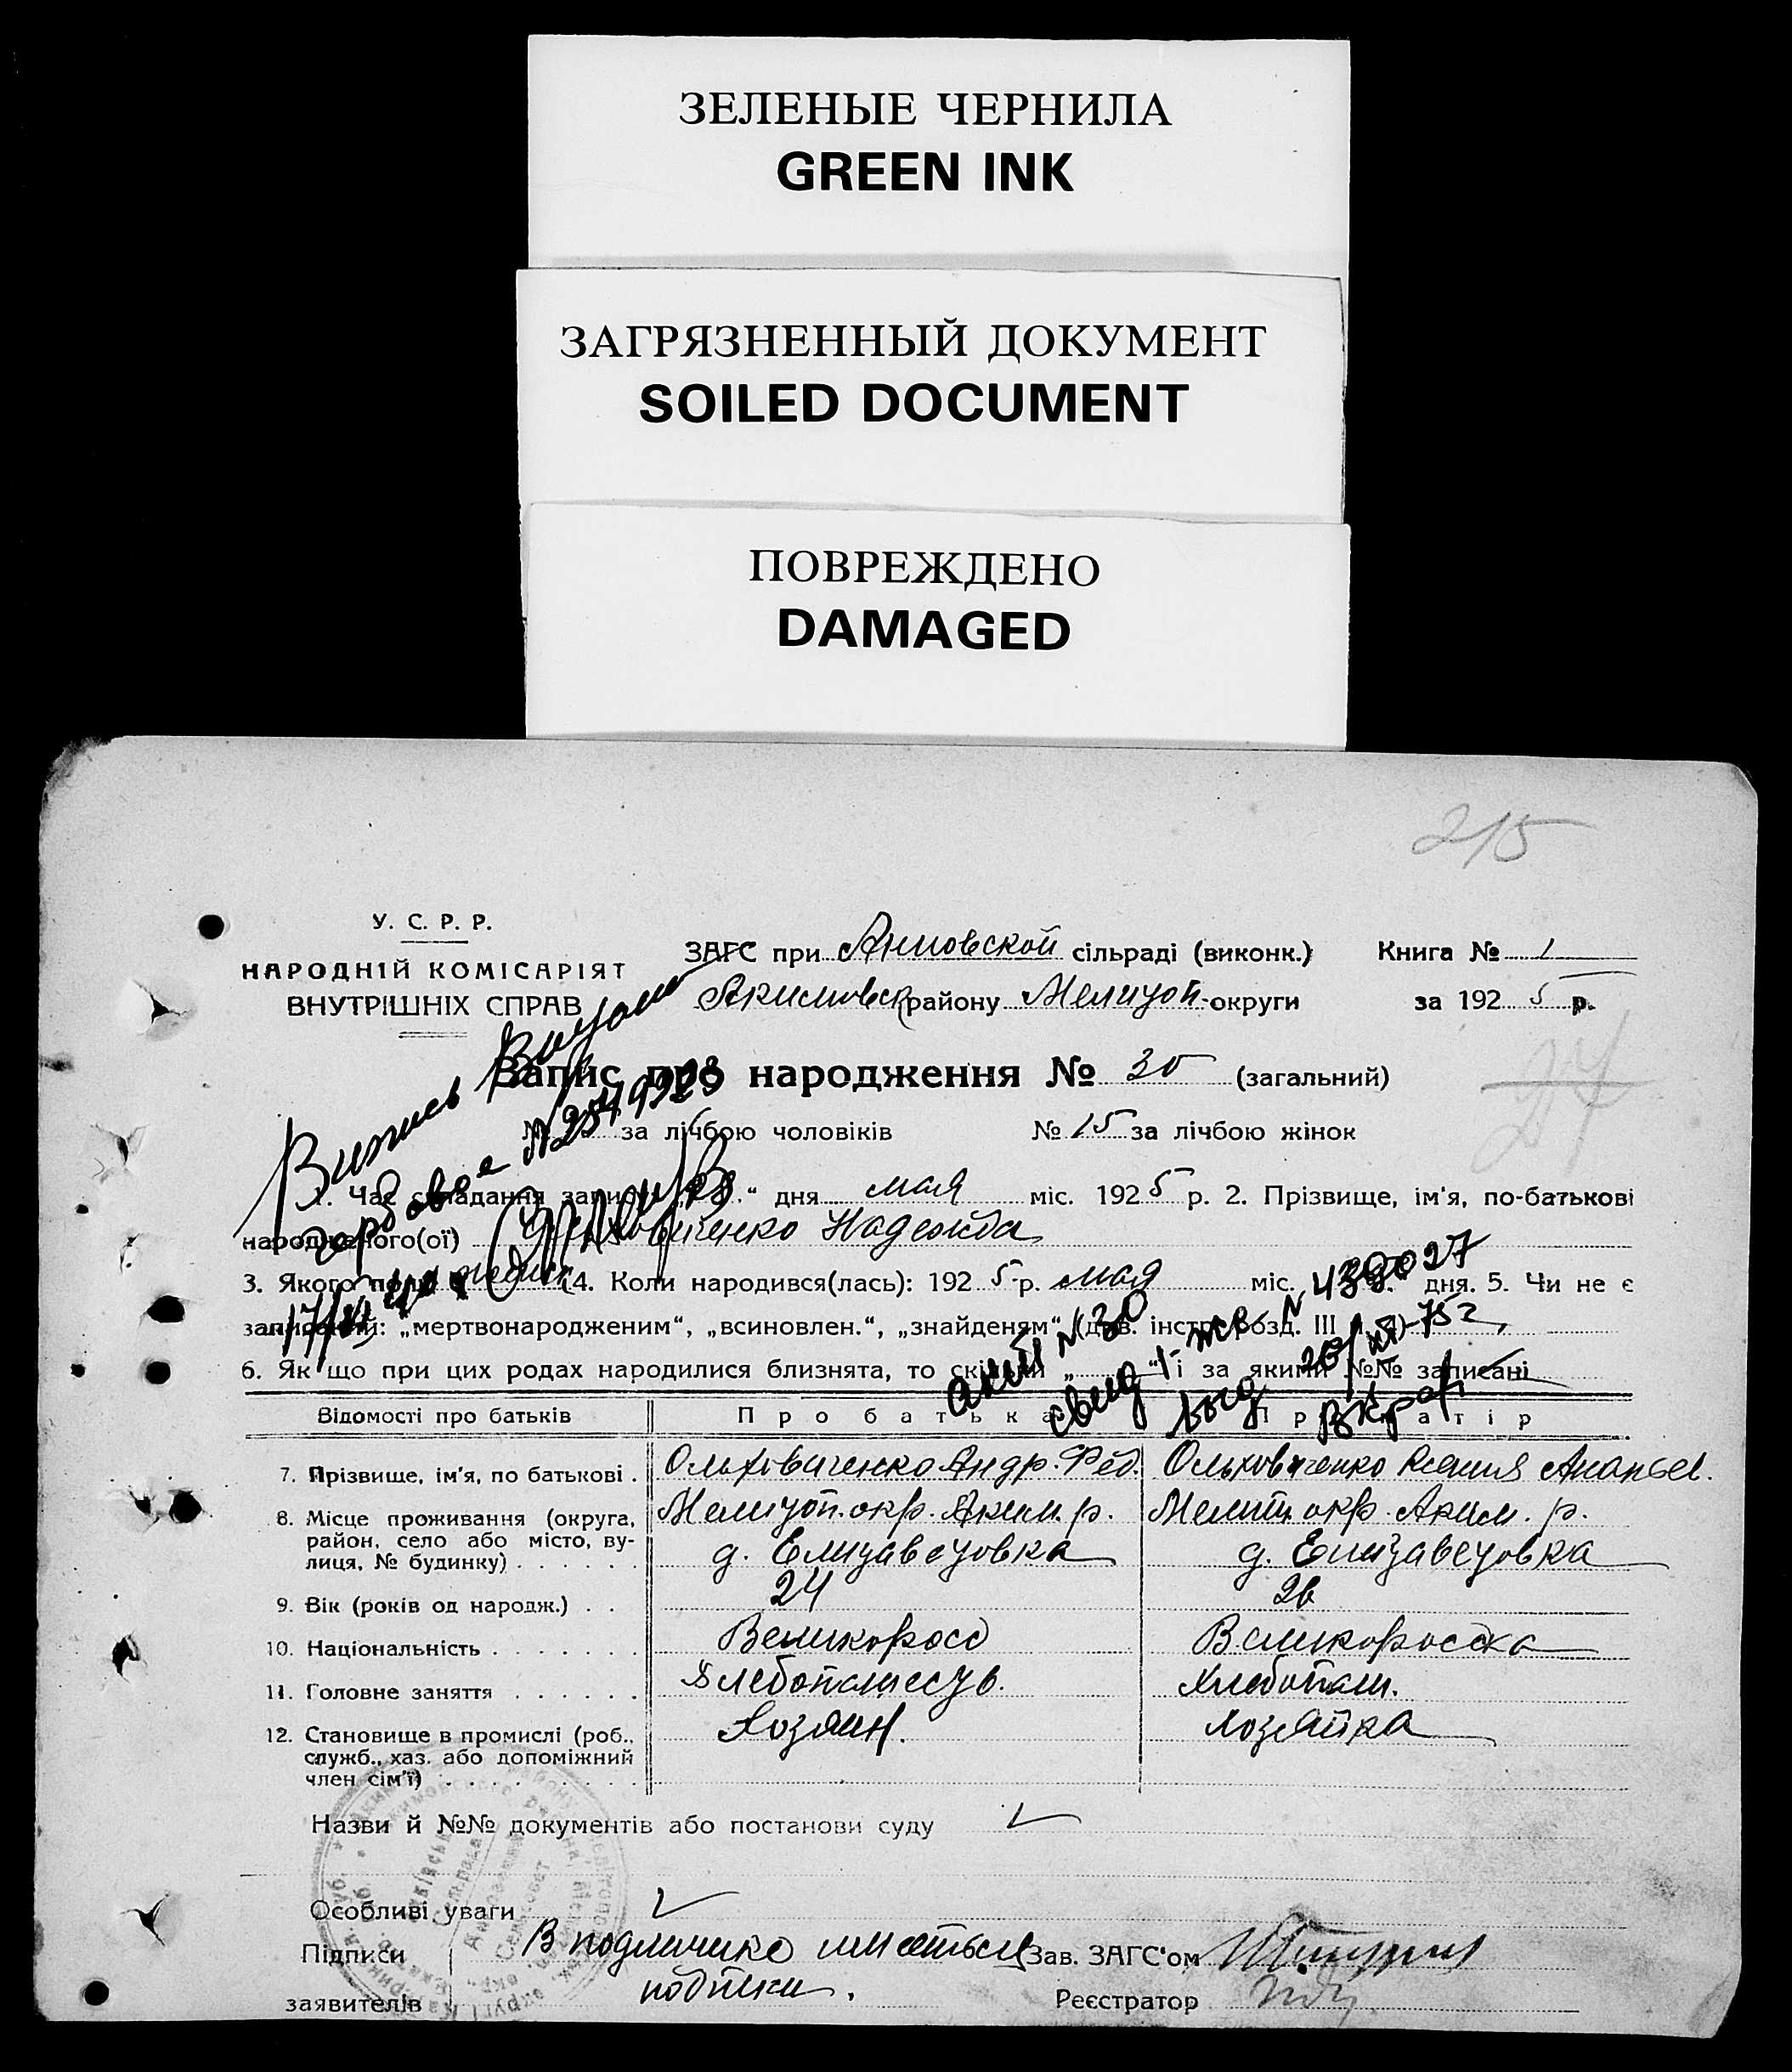 ЗЕЛЕНЫЕ ЧЕРНИЛА
GREEN INK
ЗАГРЯЗНЕННЫЙ ДОКУМЕНТ
SOILED DOCUMENT
ПОВРЕЖДЕНО
DAMAGED
215
У. С. Р. Р.
НАРОДНІЙ КОМІСАРІЯТ
ВНУТРІШНІХ СПРАВ
ЗАГС при Анновской сільраді (виконк.) Книга № 1
Акимовск району Мелитоп. округи за 1925 р.
Запис про народження № 30 (загальний)
27
№ за лічбою чоловіків № 15 за лічбою жінок
1. Час складання запису „28“ дня мая міс. 1925 р. 2. Прізвище, ім'я, по-батькові
народженого(ої) Ольховиченко Надежда
3. Якого полу 4. Коли народився(лась): 1925 р. мая міс. дня. 5. Чи не є
записаний: „мертвонародженим“, „всиновлен.“, „знайденям“ (див. інстр. розд. III
6. Як що при цих родах народилися близнята, то скільки „ “ і за якими №№ записані
Выпись
гербовая №
акт № 30
свид I-жс № 439027
выд 20/XII-75 г.
Відомості про батьків Про батька Про матір
7. Прізвище, ім'я, по батькові . Ольховиченко Андр. Фед. Ольховиченко Ксения Ананьев.
8. Місце проживання (округа, Мелитоп. окр. Аким. р. Мелит. окр. Аким. р.
район, село або місто, ву-
лиця, № будинку) . . . . . . д. Елизаветовка д. Елизаветовка
9. Вік (років од народж.) . . 24 26
10. Національність . . . . . . . Великоросс Великоросска
11. Головне заняття . . . . . . Хлебопашеств. Хлебопаш.
12. Становище в промислі (роб., Хозяин. Хозяйка
служб., хаз. або допоміжний
член сім'ї) . . . . . . . . .
Назви й №№ документів або постанови суду
Особливі уваги
Підписи В подлинике имеються Зав. ЗАГС'ом
заявителів подписи. Реєстратор